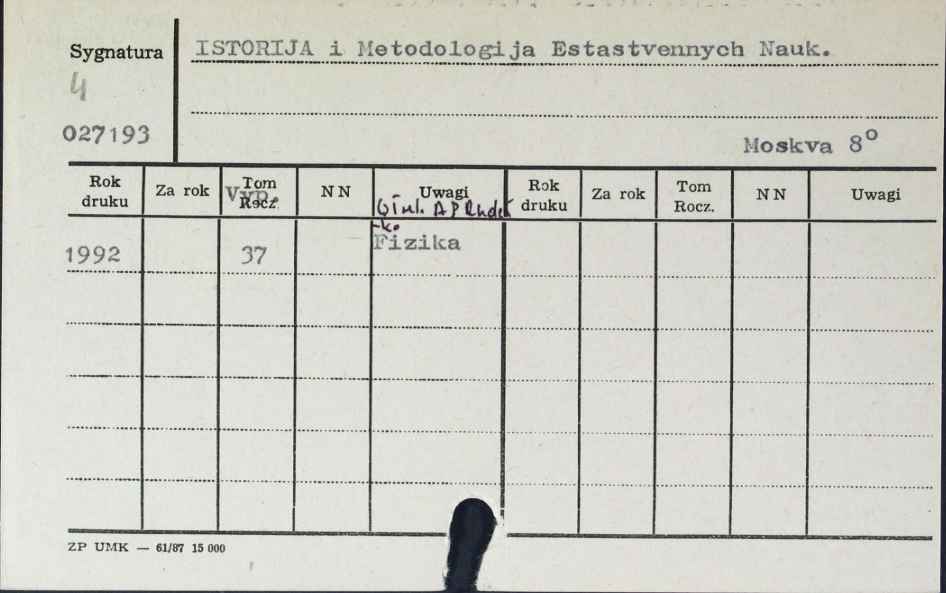 Sygnatura ISTORIJA i Metodologija Estastvennych Nauk.
4
027193 Moskva 8°
Rok druku Za rok Tom Rocz. Vyp. NN Uwagi Rok druku Za rok Tom Rocz. NN Uwagi
AP Rude
-ko
1992 37 Fizika
ZP UMK — 61/87 15 000